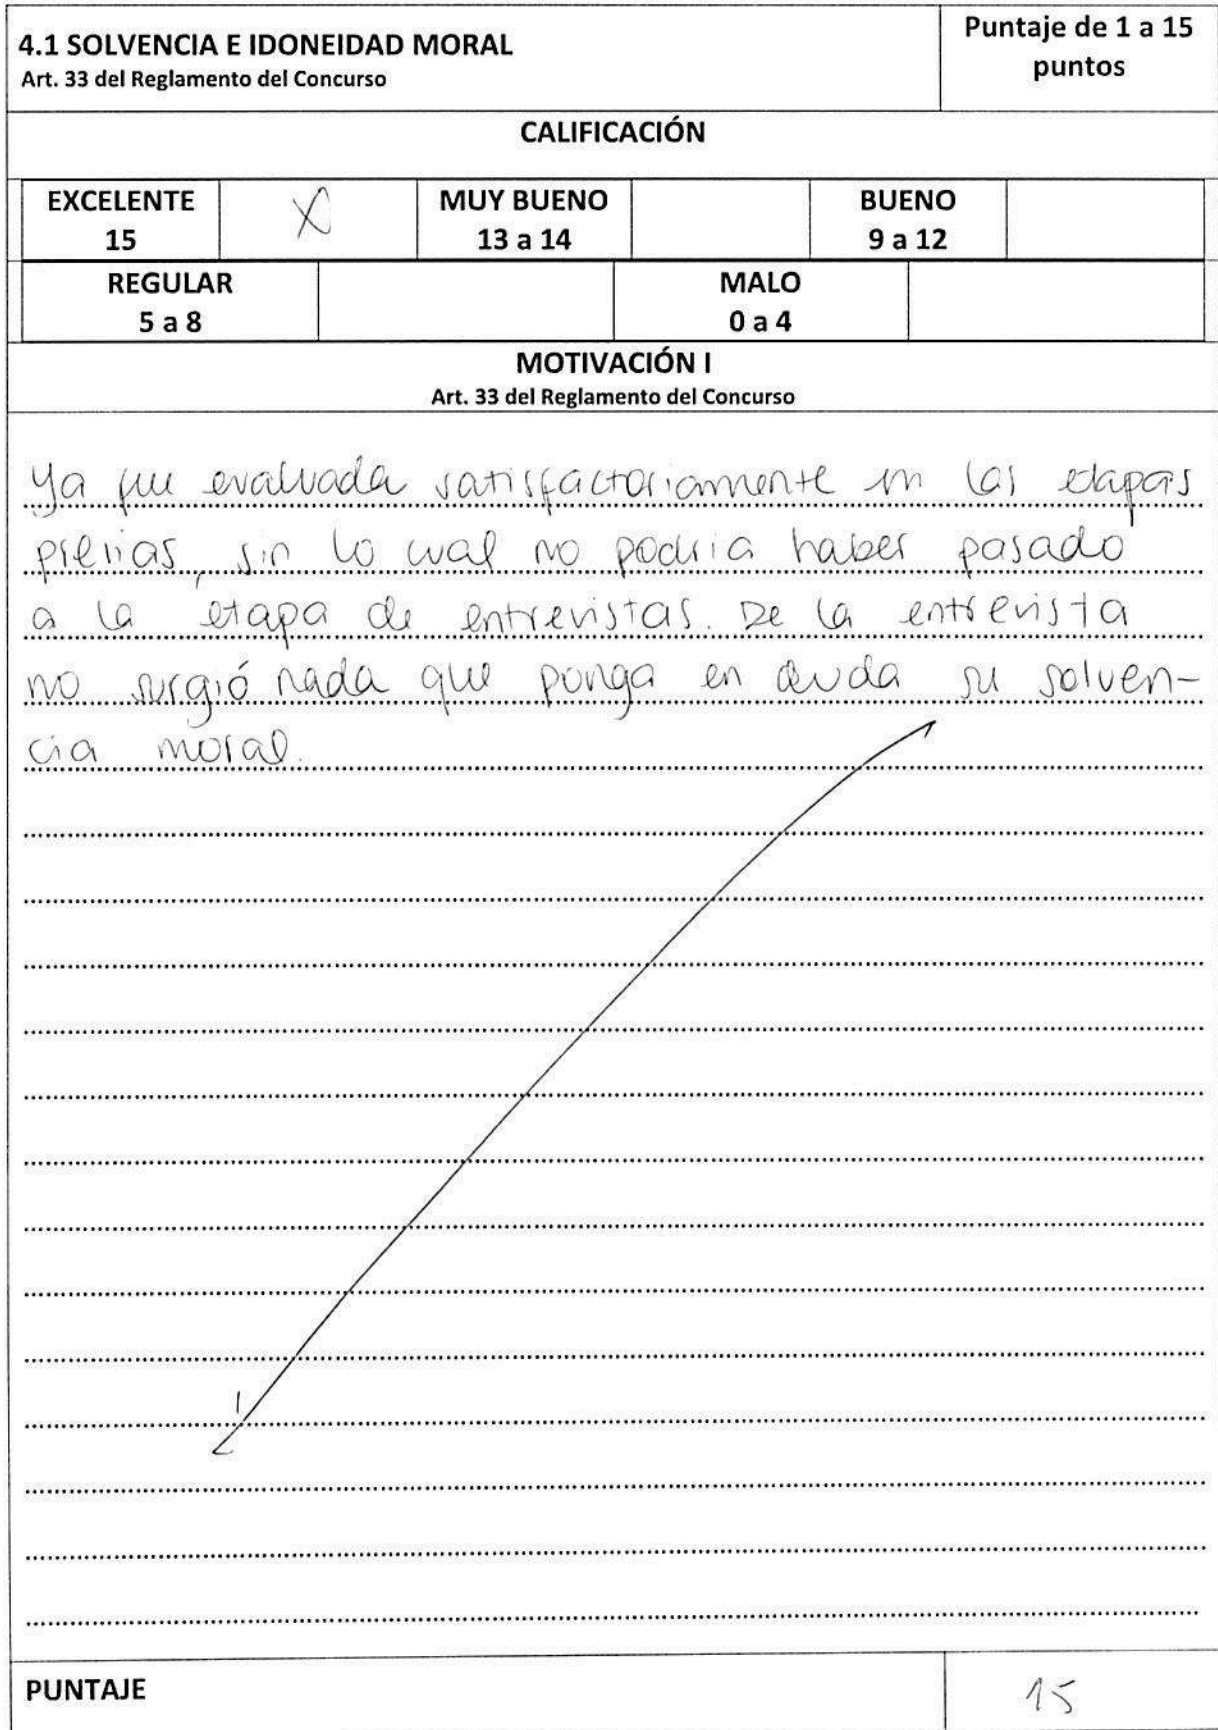 4.1 SOLVENCIA E IDONEIDAD MORAL
Art. 33 del Reglamento del Concurso
Puntaje de 1 a 15
puntos
CALIFICACIÓN
EXCELENTE
15
X
MUY BUENO
13 a 14
BUENO
9 a 12
REGULAR
5 a 8
MALO
0 a 4
MOTIVACIÓN I
Art. 33 del Reglamento del Concurso
Ya fue evaluada satisfactoriamente en las etapas
previas, sin lo cual no podria haber pasado
a la etapa de entrevistas. De la entrevista
no surgió nada que ponga en duda su solven-
cia moral.
PUNTAJE
15